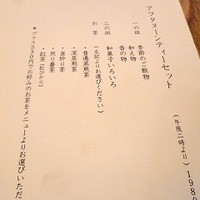 アフタヌーンティーセット
(午後二時より) 198
一の皿
季節のご飯物
和え物
香の物
二の皿
和菓子いろいろ
お茶
(左記よりお選びください)
・普通蒸煎茶
・深蒸煎茶
・釜炒り茶
・煎り番茶
・紅茶
＊プラス330円でお好みのお茶をメニューよりお選びいただ